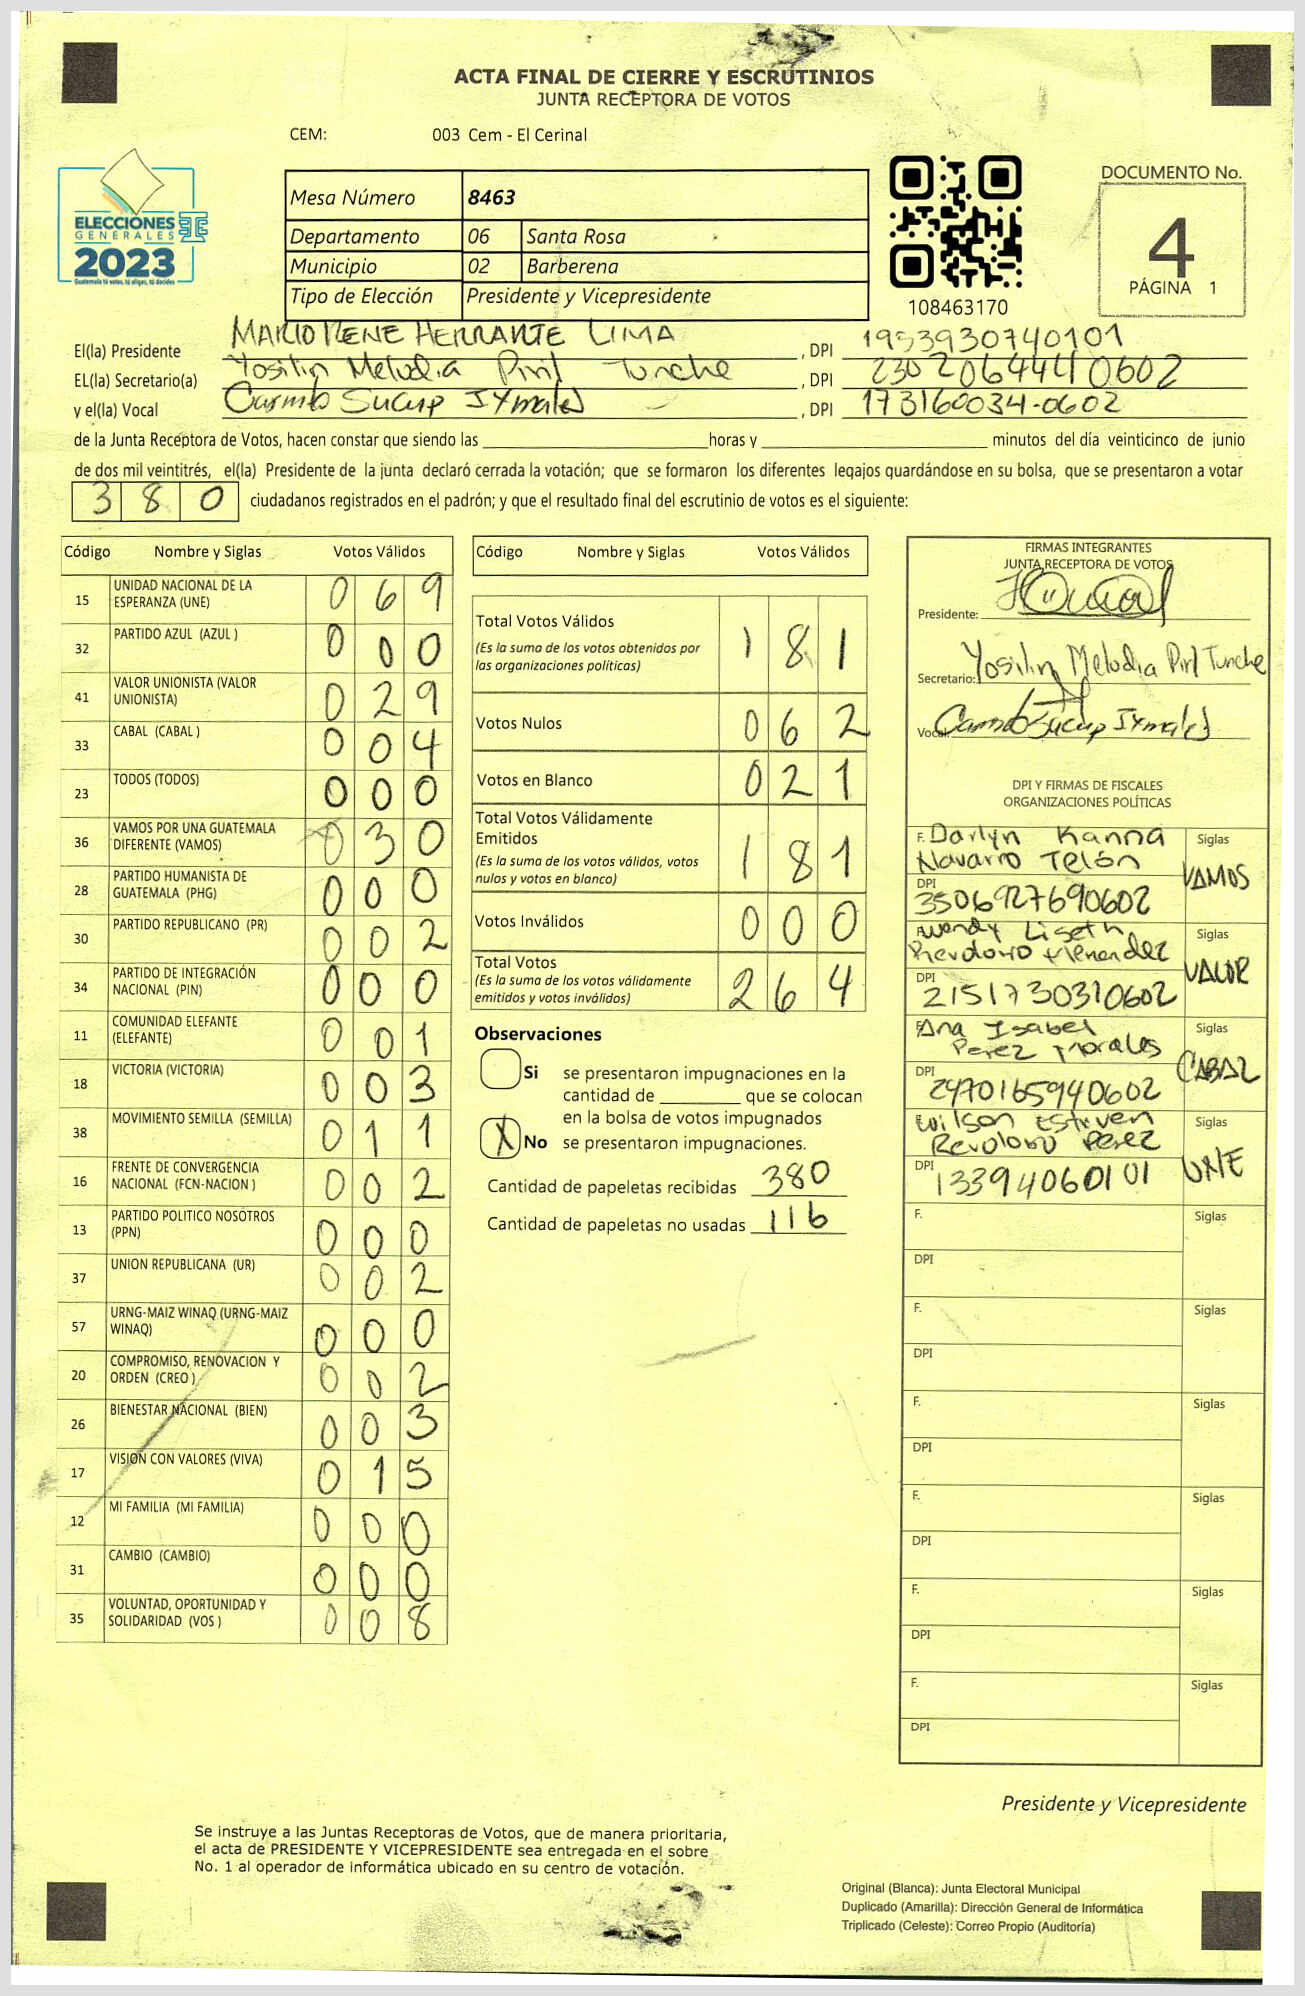 ACTA FINAL DE CIERRE Y ESCRUTINIOS
JUNTA RECEPTORA DE VOTOS
CEM: 003 Cem - El Cerinal
ELECCIONES
GENERALES
2023
Guatemala tú votas, tú eliges, tú decides
Mesa Número 8463
Departamento 06 Santa Rosa
Municipio 02 Barberena
Tipo de Elección Presidente y Vicepresidente
108463170
DOCUMENTO No.
4
PÁGINA 1
El(la) Presidente MARIO RENE HERRARTE LIMA, DPI 1953930740101
EL(la) Secretario(a) Yosilin Melodia Piril Tunche, DPI 2302064440602
y el(la) Vocal Carmlo Sucup Ixmales, DPI 173160034-0602
de la Junta Receptora de Votos, hacen constar que siendo las ____ horas y ____ minutos del día veinticinco de junio
de dos mil veintitrés, el(la) Presidente de la junta declaró cerrada la votación; que se formaron los diferentes legajos guardándose en su bolsa, que se presentaron a votar
380 ciudadanos registrados en el padrón; y que el resultado final del escrutinio de votos es el siguiente:
Código Nombre y Siglas Votos Válidos
15 UNIDAD NACIONAL DE LA ESPERANZA (UNE) 069
32 PARTIDO AZUL (AZUL ) 000
41 VALOR UNIONISTA (VALOR UNIONISTA) 029
33 CABAL (CABAL ) 004
23 TODOS (TODOS) 000
36 VAMOS POR UNA GUATEMALA DIFERENTE (VAMOS) 030
28 PARTIDO HUMANISTA DE GUATEMALA (PHG) 000
30 PARTIDO REPUBLICANO (PR) 002
34 PARTIDO DE INTEGRACIÓN NACIONAL (PIN) 000
11 COMUNIDAD ELEFANTE (ELEFANTE) 001
18 VICTORIA (VICTORIA) 003
38 MOVIMIENTO SEMILLA (SEMILLA) 011
16 FRENTE DE CONVERGENCIA NACIONAL (FCN-NACION ) 002
13 PARTIDO POLITICO NOSOTROS (PPN) 000
37 UNION REPUBLICANA (UR) 002
57 URNG-MAIZ WINAQ (URNG-MAIZ WINAQ) 000
20 COMPROMISO, RENOVACION Y ORDEN (CREO ) 002
26 BIENESTAR NACIONAL (BIEN) 003
17 VISION CON VALORES (VIVA) 015
12 MI FAMILIA (MI FAMILIA) 000
31 CAMBIO (CAMBIO) 000
35 VOLUNTAD, OPORTUNIDAD Y SOLIDARIDAD (VOS ) 008
Código Nombre y Siglas Votos Válidos
Total Votos Válidos 181
(Es la suma de los votos obtenidos por
las organizaciones políticas)
Votos Nulos 062
Votos en Blanco 021
Total Votos Válidamente
Emitidos 181
(Es la suma de los votos válidos, votos
nulos y votos en blanco)
Votos Inválidos 000
Total Votos 264
(Es la suma de los votos válidamente
emitidos y votos inválidos)
Observaciones
Si se presentaron impugnaciones en la
cantidad de ____ que se colocan
en la bolsa de votos impugnados
X No se presentaron impugnaciones.
Cantidad de papeletas recibidas 380
Cantidad de papeletas no usadas 116
FIRMAS INTEGRANTES
JUNTA RECEPTORA DE VOTOS
Presidente:
Secretario: Yosilin Melodia Piril Tunche
Vocal: Carmlo Sucup Ixmales
DPI Y FIRMAS DE FISCALES
ORGANIZACIONES POLÍTICAS
F. Darlyn Kanna
Navarro Telón
Siglas VAMOS
DPI 3506927690602
F. Wendy Liseth
Revolorio Menendez
Siglas VALOR
DPI 2151730310602
F. Ana Isabel
Perez Morales
Siglas CABAL
DPI 2470165940602
F. Wilson Estuven
Revolorio Perez
Siglas UNE
DPI 13394060101
F. Siglas
DPI
F. Siglas
DPI
F. Siglas
DPI
F. Siglas
DPI
F. Siglas
DPI
F. Siglas
DPI
Presidente y Vicepresidente
Se instruye a las Juntas Receptoras de Votos, que de manera prioritaria,
el acta de PRESIDENTE Y VICEPRESIDENTE sea entregada en el sobre
No. 1 al operador de informática ubicado en su centro de votación.
Original (Blanca): Junta Electoral Municipal
Duplicado (Amarilla): Dirección General de Informática
Triplicado (Celeste): Correo Propio (Auditoría)